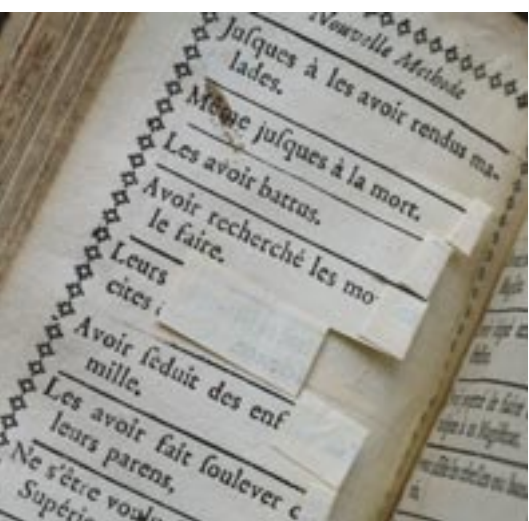 Nouvelle Methode
Juſques à les avoir rendus ma-
lades.
Même juſques à la mort.
Les avoir battus.
Avoir recherché les mo
le faire.
Leurs
cites
Avoir ſeduit des enf
mille.
Les avoir fait ſoulever c
leurs parens,
Ne s'être voulu
Supérie